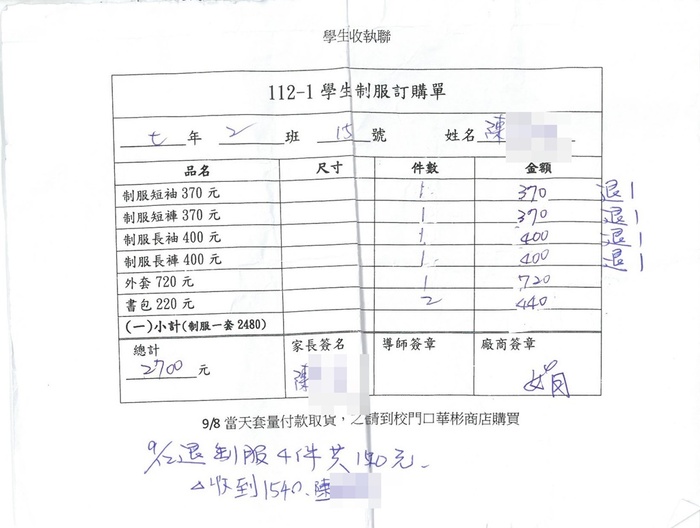 學生收執聯
112-1 學生制服訂購單
七 年 2 班 15 號 姓名 陳
品名 尺寸 件數 金額
制服短袖 370 元 1 370 退1
制服短褲 370 元 1 370 退1
制服長袖 400 元 1 400 退1
制服長褲 400 元 1 400 退1
外套 720 元 1 720
書包 220 元 2 440
(一)小計(制服一套 2480)
總計 家長簽名 導師簽章 廠商簽章
2700 元 陳
9/8 當天套量付款取貨，之請到校門口華彬商店購買
退制服4件共1540元.
△收到1540.陳